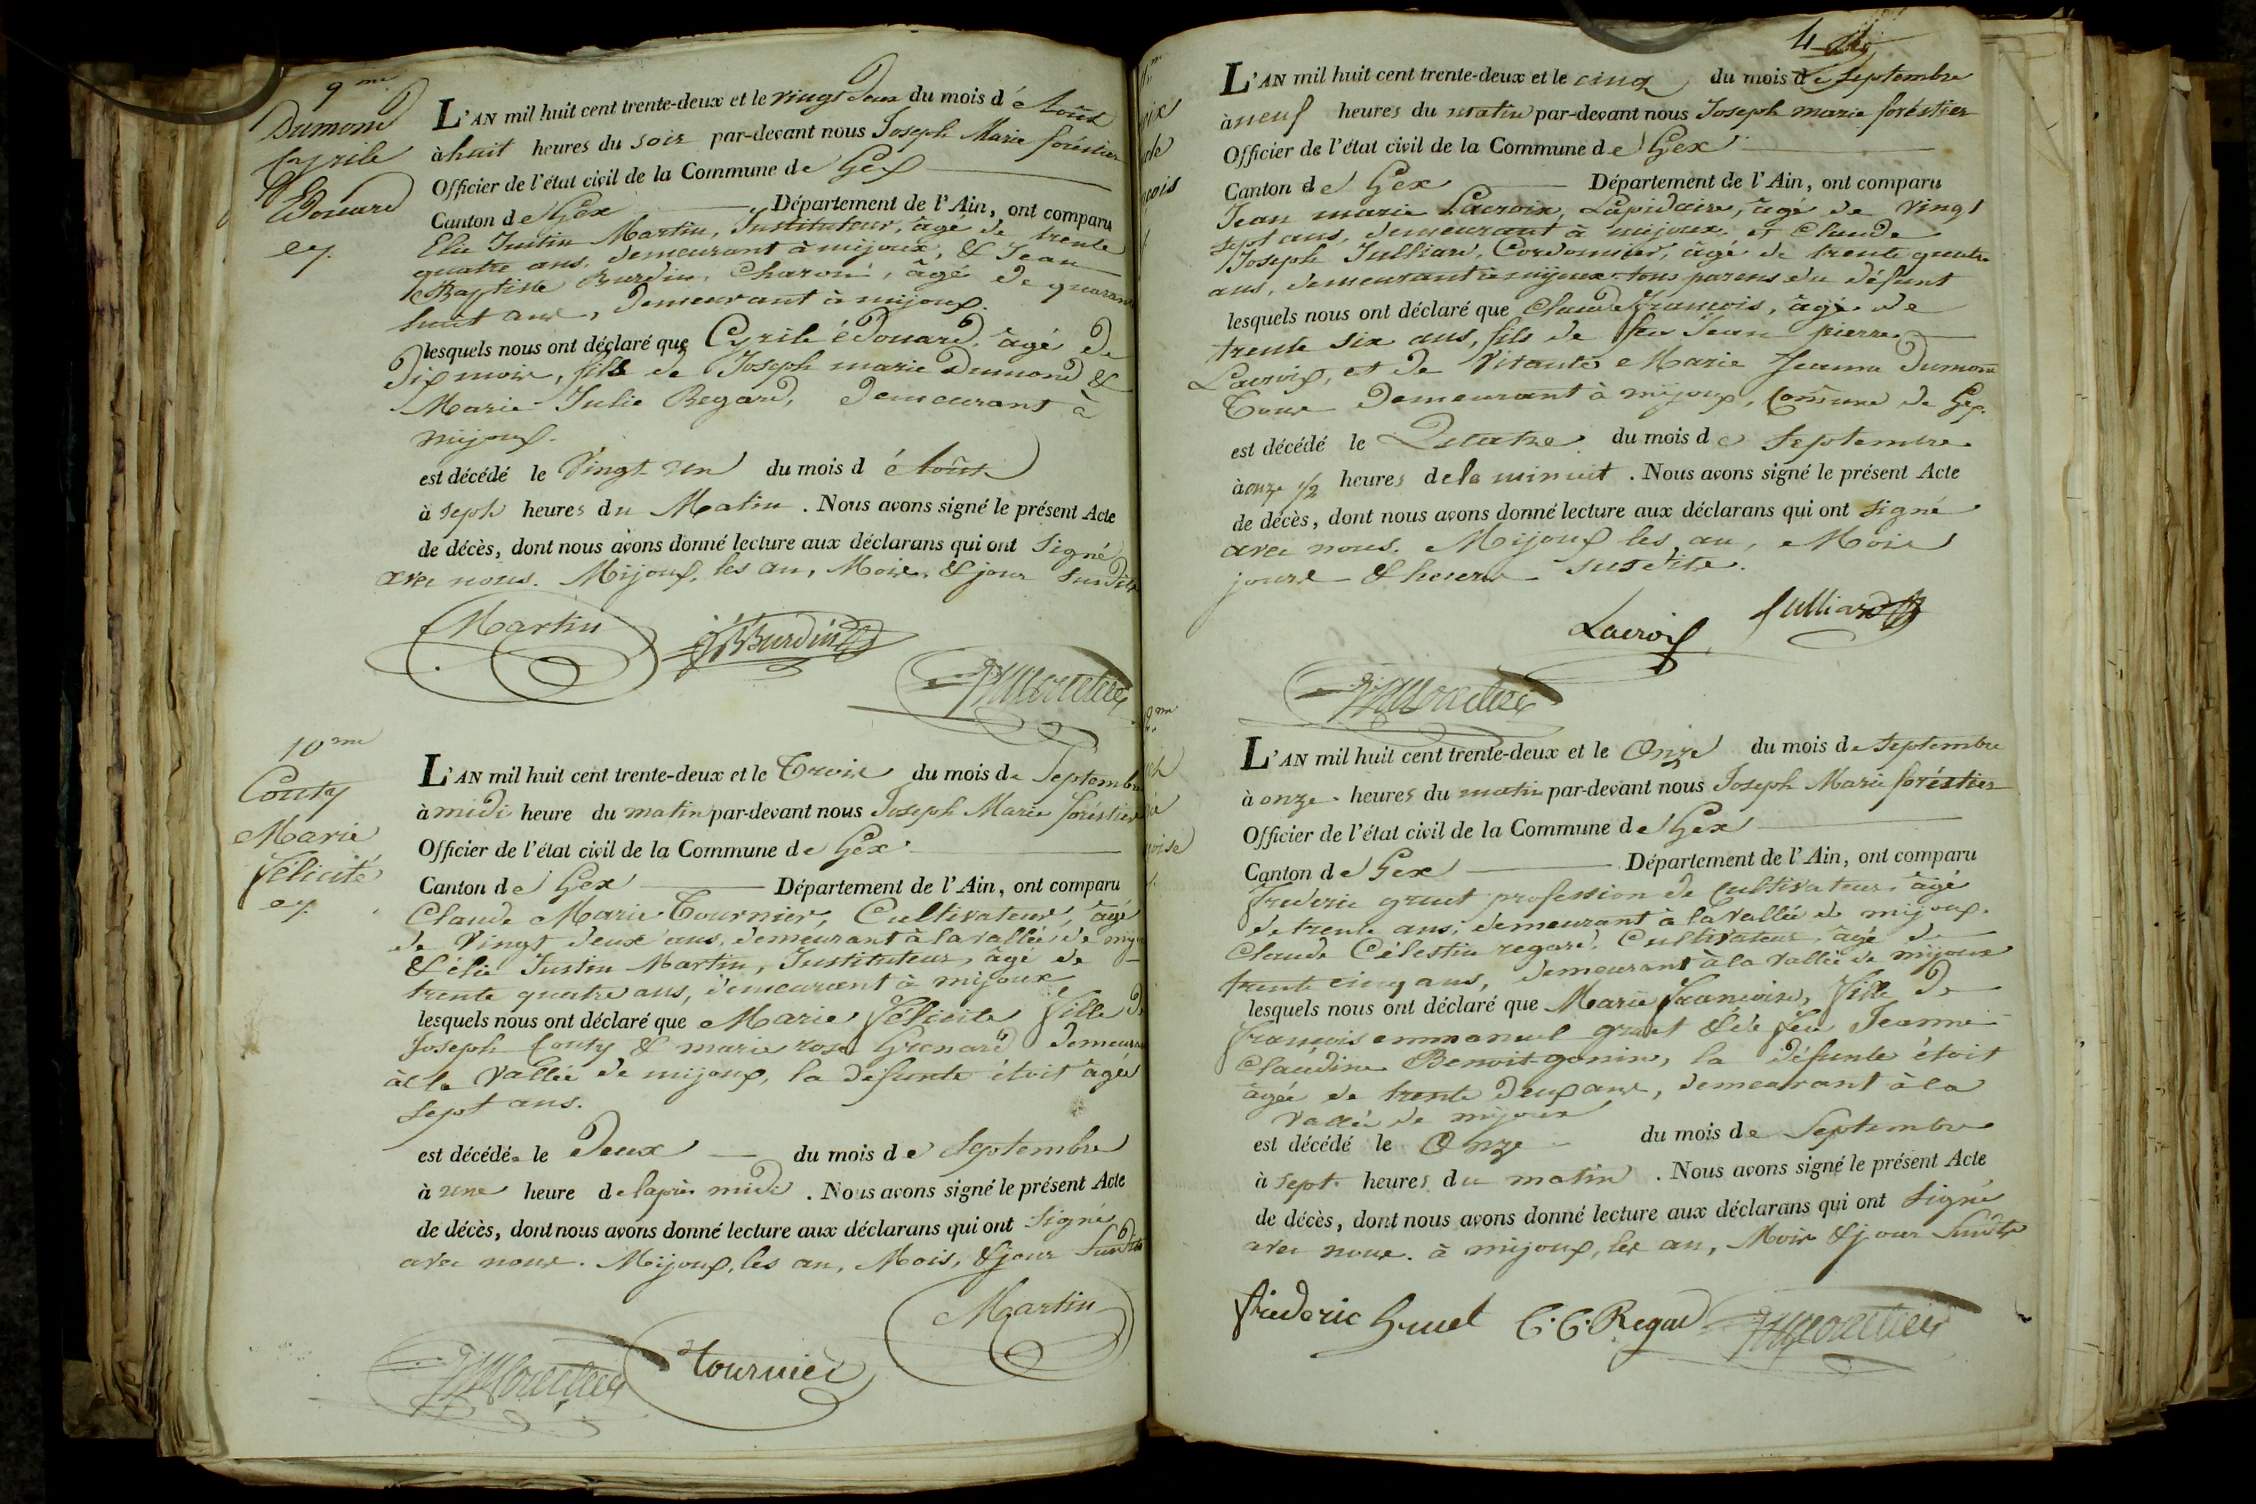 9me
Dumond
Cyrile
Edouard
L'AN mil huit cent trente-deux et le vingt deux du mois d'Août
à huit heures du soir par-devant nous Joseph Marie foréstier
Officier de l'état civil de la Commune de Gex
Canton de Gex Département de l'Ain, ont comparu
Elie Justin Martin, Instituteur, âgé de trente
quatre ans, demeurant à mijoux, & Jean
Baptiste Burdin, Charon, âgé de quarante
huit ans, demeurant à mijoux.
lesquels nous ont déclaré que Cyrile édouard, âgé de
dix mois, fils de Joseph marie Dumond &
Marie Julie Regard, demeurant à
mijoux.
est décédé le Vingt un du mois d'août
à sept heures du Matin. Nous avons signé le présent Acte
de décès, dont nous avons donné lecture aux déclarans qui ont signé
avec nous. Mijoux, les an, Mois, & jour susdits
Martin JB Burdin
10me
Couty
Marie
Félicité
L'AN mil huit cent trente-deux et le Trois du mois de Septembre
à midi heure du matin par-devant nous Joseph Marie foréstier
Officier de l'état civil de la Commune de Gex
Canton de Gex Département de l'Ain, ont comparu
Claude Marie Tournier, Cultivateur, âgé
de Vingt deux ans, demeurant à la vallée de
& élie Justin Martin, Instituteur, âgé de
trente quatre ans, demeurant à mijoux
lesquels nous ont déclaré que Marie Félicité fille de
Joseph Couty & marie rose Grenard demeurant
à la Vallée de mijoux, la défunte étoit âgée
sept ans.
est décédée le Deux du mois de Septembre
à une heure de laprès midi. Nous avons signé le présent Acte
de décès, dont nous avons donné lecture aux déclarans qui ont signé
avec nous. Mijoux, les an, Mois, & jour susdits
Martin
Tournier
4
L'AN mil huit cent trente-deux et le cinq du mois de septembre
à neuf heures du matin par-devant nous Joseph marie foréstier
Officier de l'état civil de la Commune de Gex
Canton de Gex Département de l'Ain, ont comparu
Jean marie Lacroix, Lapidaire, âgé de vingt
sept ans, demeurant à mijoux. et Claude
Joseph Julliard, Cordonnier, âgé de trente quatre
ans, demeurant à mijoux tous parens du défunt
lesquels nous ont déclaré que Claude françois, âgé de
trente six ans, fils de feu Jean pierre
Lacroix, et de Vivante Marie Jeanne Dumond
Tous demeurant à mijoux, Commune de Gex.
est décédé le Quatre du mois de Septembre
à onze 1/2 heures de la minuit. Nous avons signé le présent Acte
de décès, dont nous avons donné lecture aux déclarans qui ont signé
avec nous. Mijoux les an, Mois
jours & heures susdits.
Lacroix Julliard
L'AN mil huit cent trente-deux et le Onze du mois de Septembre
à onze heures du matin par-devant nous Joseph Marie foréstier
Officier de l'état civil de la Commune de Gex
Canton de Gex Département de l'Ain, ont comparu
Frederic gruet profession de Cultivateur, âgé
de trente ans, demeurant à la Vallée de mijoux.
Claude Célestin regard, Cultivateur, âgé de
trente cinq ans, demeurant à la Vallée de mijoux
lesquels nous ont déclaré que Marie françoise, fille de
françois emmanuel gruet & de feu Jeanne
Claudine Benoit gonin, la défunte étoit
âgée de trente deux ans, demeurant à la
Vallée de mijoux
est décédé le Onze du mois de Septembre
à sept heures du matin. Nous avons signé le présent Acte
de décès, dont nous avons donné lecture aux déclarans qui ont signé
avec nous. à mijoux, les an, Mois & jour susdits
frideric Gruet C. C. Regad